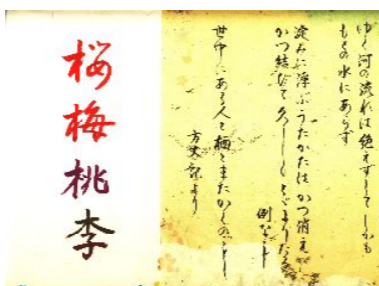 ゆく河の流れは絶えずしてしかも
もとの水にあらず
淀みに浮ぶうたかたはかつ消え
かつ結びて久しくとゞまりたる
例なし
世中にある人と栖とまたかくのごとし
方丈記より
桜梅桃李